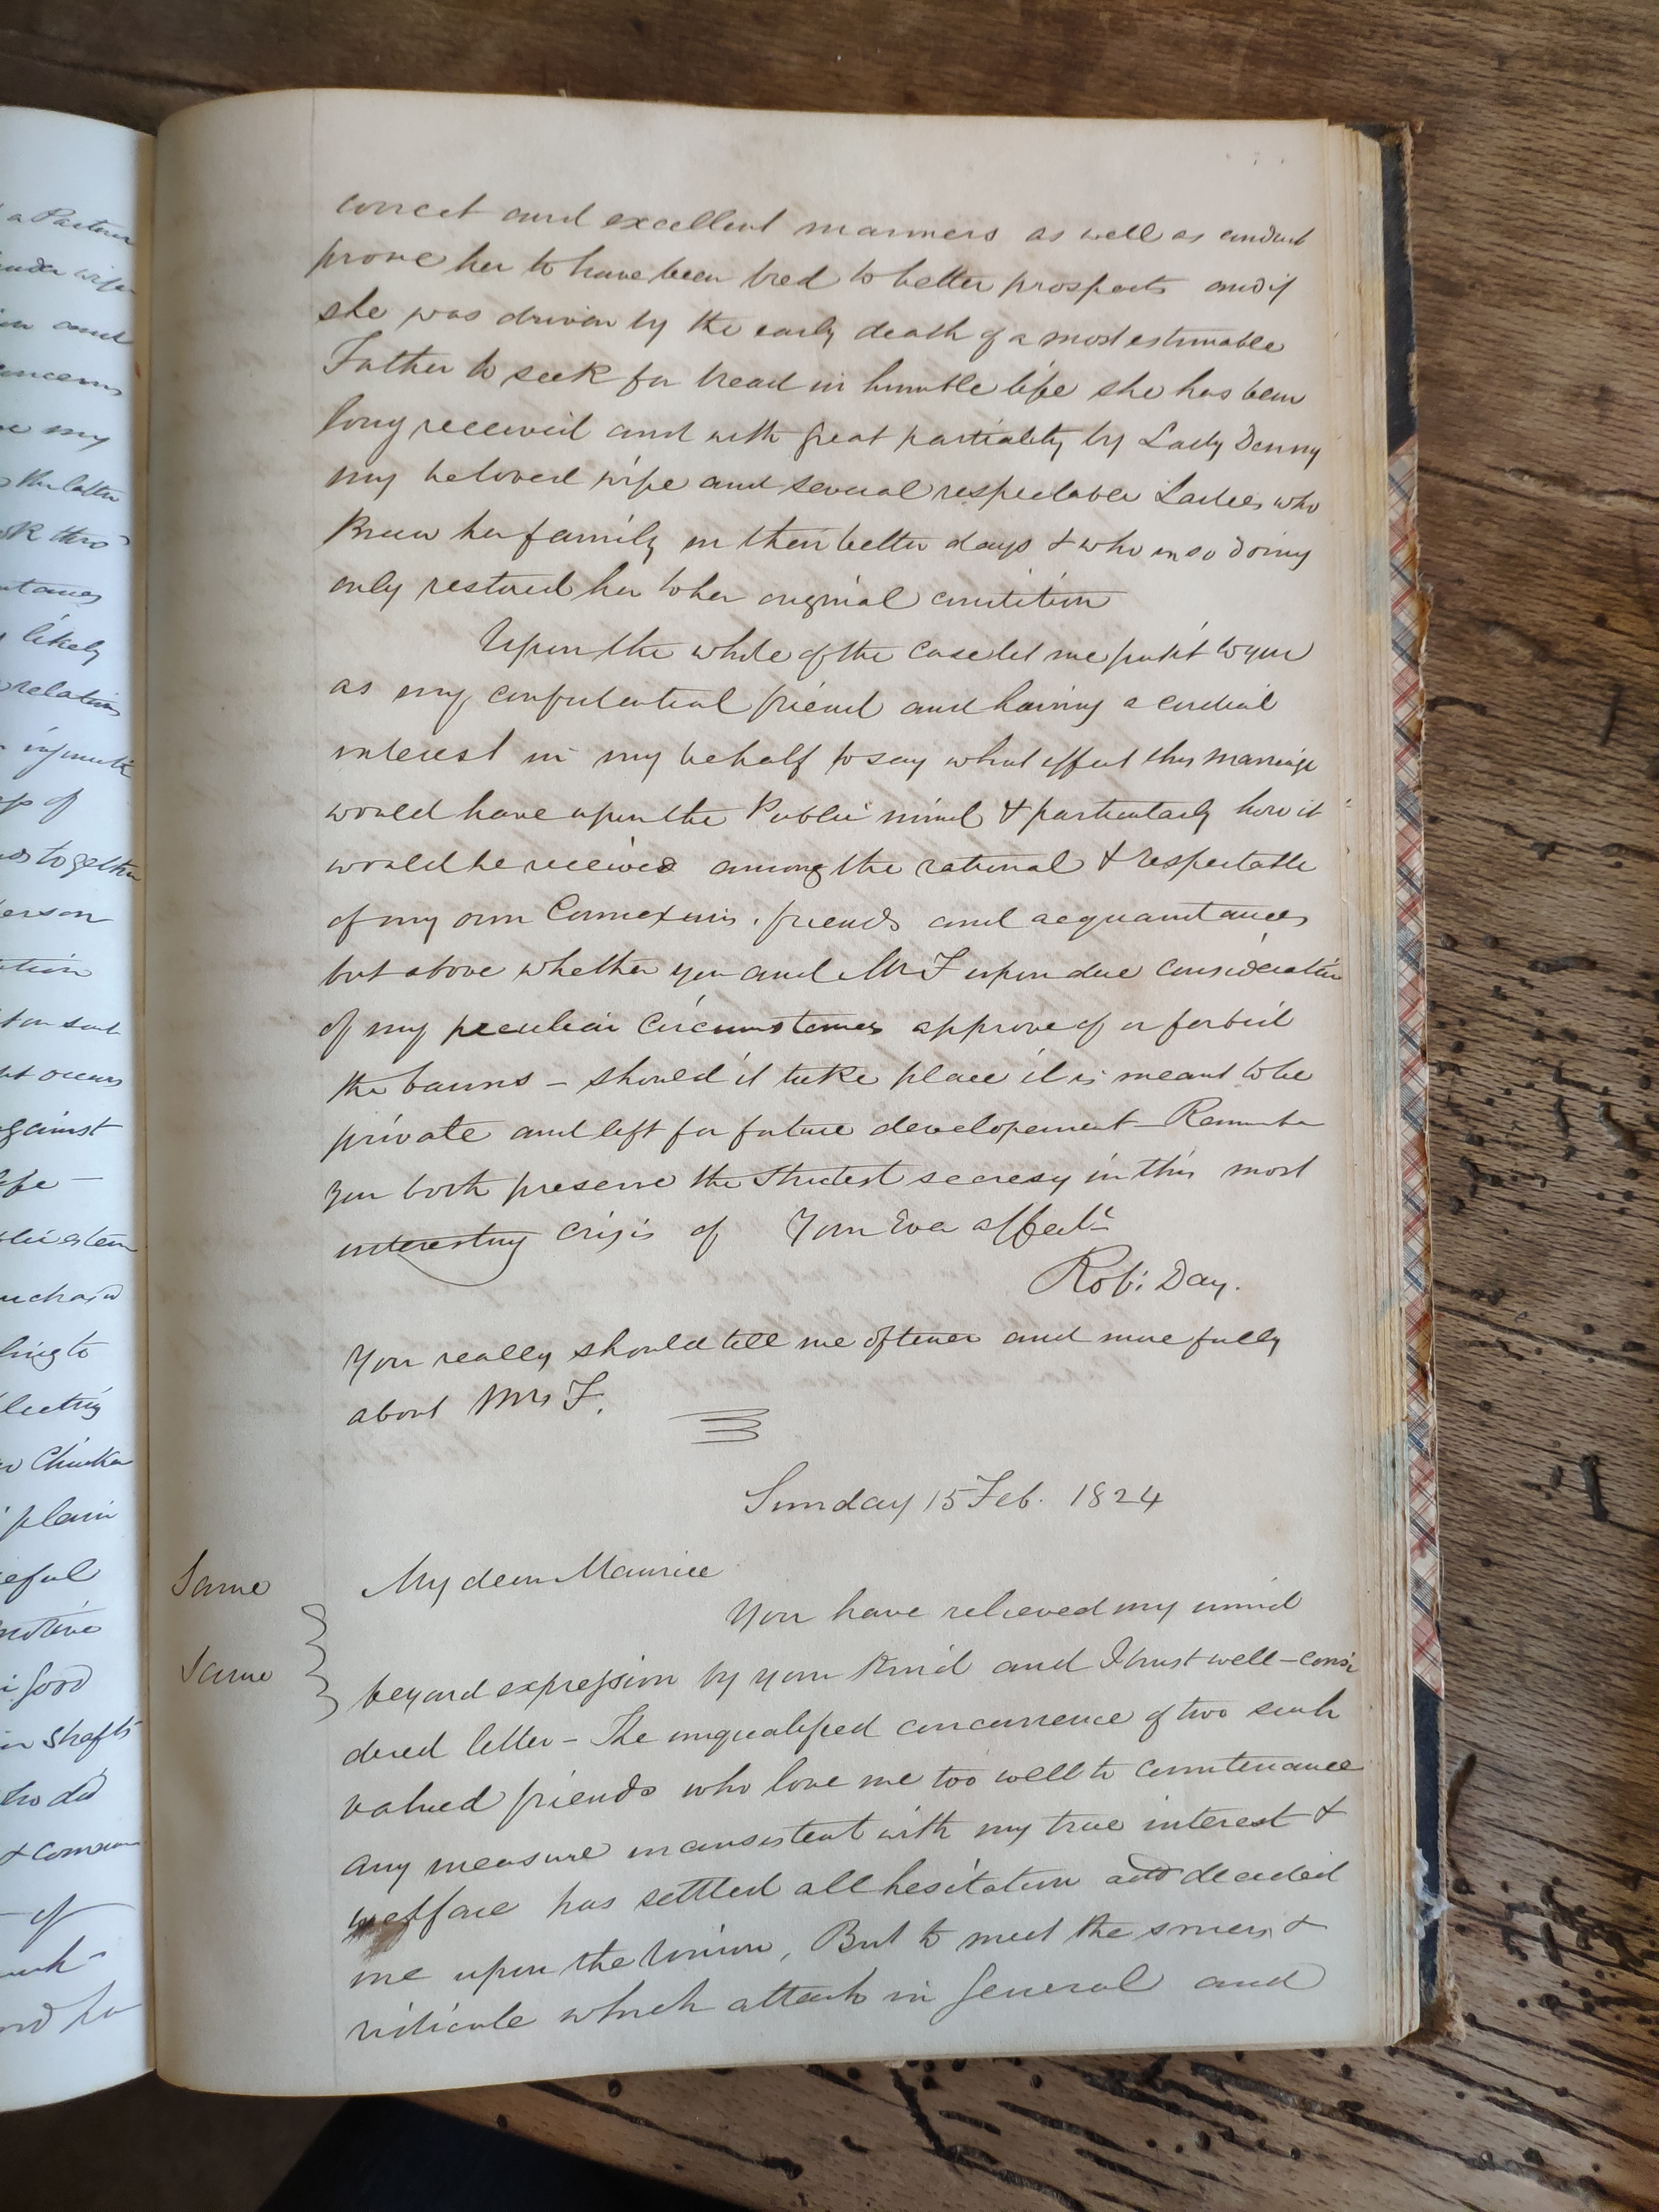 a Partner
under wife
and
concerns
my
the latter
thro
likely
relation
of
together
person
against
life —
plain
motive
good
shafts
who did
& common
of
correct and excellent manners as well as conduct
prove her to have been bred to better prospects and if
she was driven by the early death of a most estimable
Father to seek for bread in humble life she has been
long received and with great partiality by Lady Denny
my beloved wife and several respectable Ladies who
Knew her family in their better days & who in so doing
only restored her to her original condition
Upon the whole of the case let me put it to you
as my confidential friend and having a cordial
interest in my behalf to say what effect this marriage
would have upon the Public mind & particularly how it
would be received among the rational & respectable
of my own Connexions, friends and acquaintances
but above whether you and Mrs F upon due consideration
of my peculiar Circumstances approve of or forbid
the banns – should it take place it is meant to be
private and left for future developement – Remember
you both preserve the strictest secresy in this most
interesting crisis of Your Ever affecte
Robt: Day.
You really should tell me oftener and more fully
about Mrs F.
Sunday 15 Feb. 1824
Same
My dear Maurice
You have relieved my mind
Same
beyond expression by your Kind and I trust well-consi
dered letter – The unqualified concurrence of two such
valued friends who love me too well to countenance
any measure inconsistent with my true interest &
welfare has settled all hesitation and decided
me upon the Union, But to meet the sneers &
ridicule which attach in general and